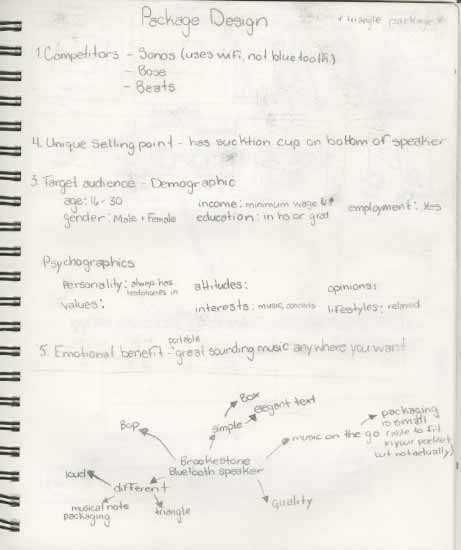 Package Design
+ triangle package
1. Competitors - Sonos (uses wifi, not bluetooth)
- Bose
- Beats
4. Unique Selling point - has sucktion cup on bottom of speaker
3. Target audience - Demographic
age: 16 - 30 income: minimum wage employment: yes
gender: Male + Female education: in hs or grad
Psychographics
Personality: always has headphones in attitudes: opinions:
values: interests: music, concerts lifestyles: relaxed
portable
5. Emotional benefit - great sounding music anywhere you want
Box
elegant text
simple
Bop
packaging
is small
(able to fit
in your pocket
but not actually)
music on the go
Brookestone
Bluetooth speaker
loud
different
Quality
musical note
packaging
triangle